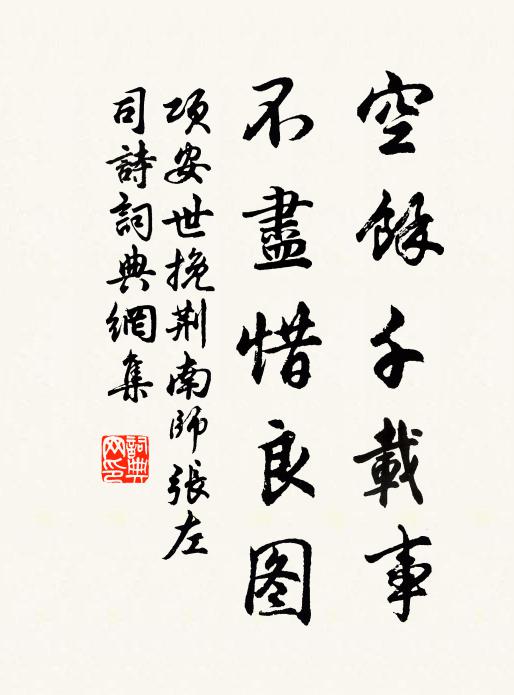 空餘千載事
不盡惜良图
項安世挽荆南師張左
司詩詞典網集
詞典網印